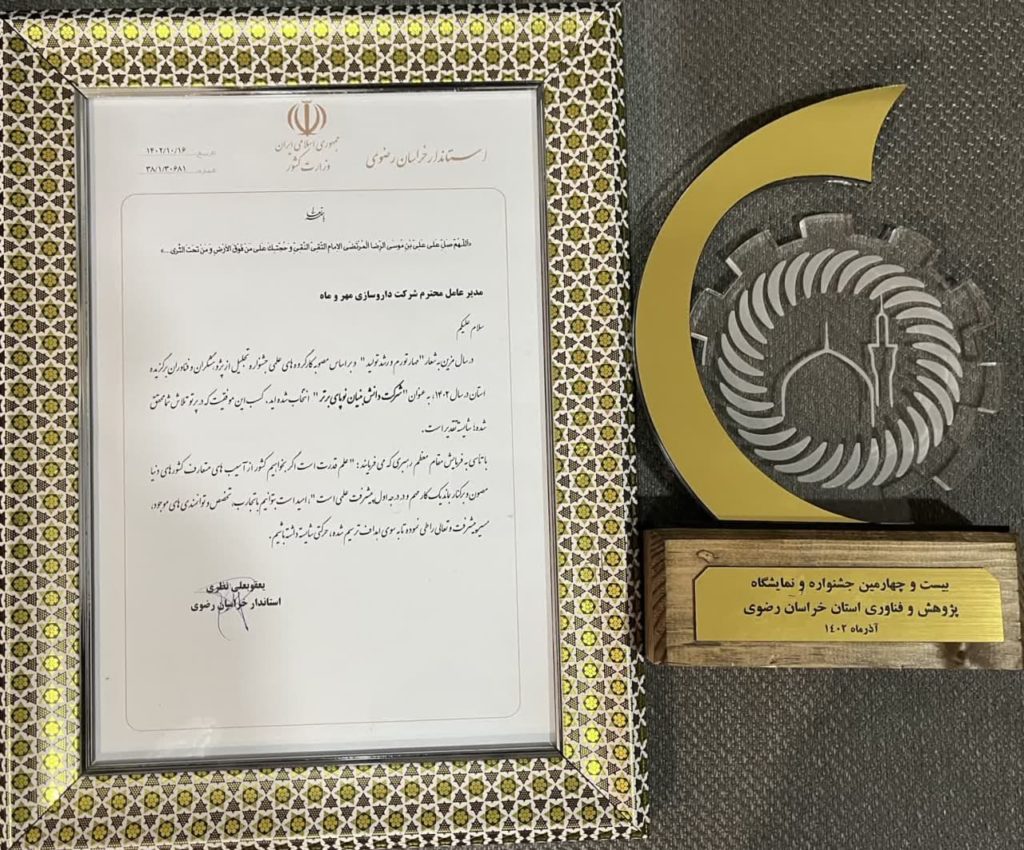 جمهوری اسلامی ایران
وزارت کشور
استاندار خراسان رضوی
تاریخ ۱۴۰۲/۱۰/۱۶
شماره ۳۸/۱/۳۰۶۸۱
«اللّهُمَّ صَلِّ عَلی عَلِیِّ بنِ مُوسَی الرِّضا المُرتَضی الاِمامِ التَّقِیِّ النَّقِیِّ وَ حُجَّتِکَ عَلی مَن فَوقَ الاَرضِ وَ مَن تَحتَ الثَّری ...»
مدیر عامل محترم شرکت داروسازی مهر و ماه
سلام علیکم
در سال مزین به شعار "مهار تورم و رشد تولید" و بر اساس مصوبه کارگروه های علمی جشنواره تجلیل از پژوهشگران و فناوران برگزیده
استان در سال ۱۴۰۲، به عنوان "شرکت دانش بنیان نوپای برتر" انتخاب شده اید، کسب این موفقیت که در پرتو تلاش شما محقق
شده؛ شایسته تقدیر است.
با تاسی به فرمایش مقام معظم رهبری که می فرمایند: "علم قدرت است اگر بخواهیم کشور از آسیب های متعارف کشورهای دنیا
مصون و برکنار بماند یک کار مهم و در درجه اول پیشرفت علمی است"، امید است بتوانیم با تجارب، تخصص و توانمندی های موجود،
مسیر پیشرفت و تعالی را طی نموده تا به سوی اهداف ترسیم شده، حرکتی شایسته داشته باشیم.
یعقوبعلی نظری
استاندار خراسان رضوی
بیست و چهارمین جشنواره و نمایشگاه
پژوهش و فناوری استان خراسان رضوی
آذرماه ۱٤۰۲